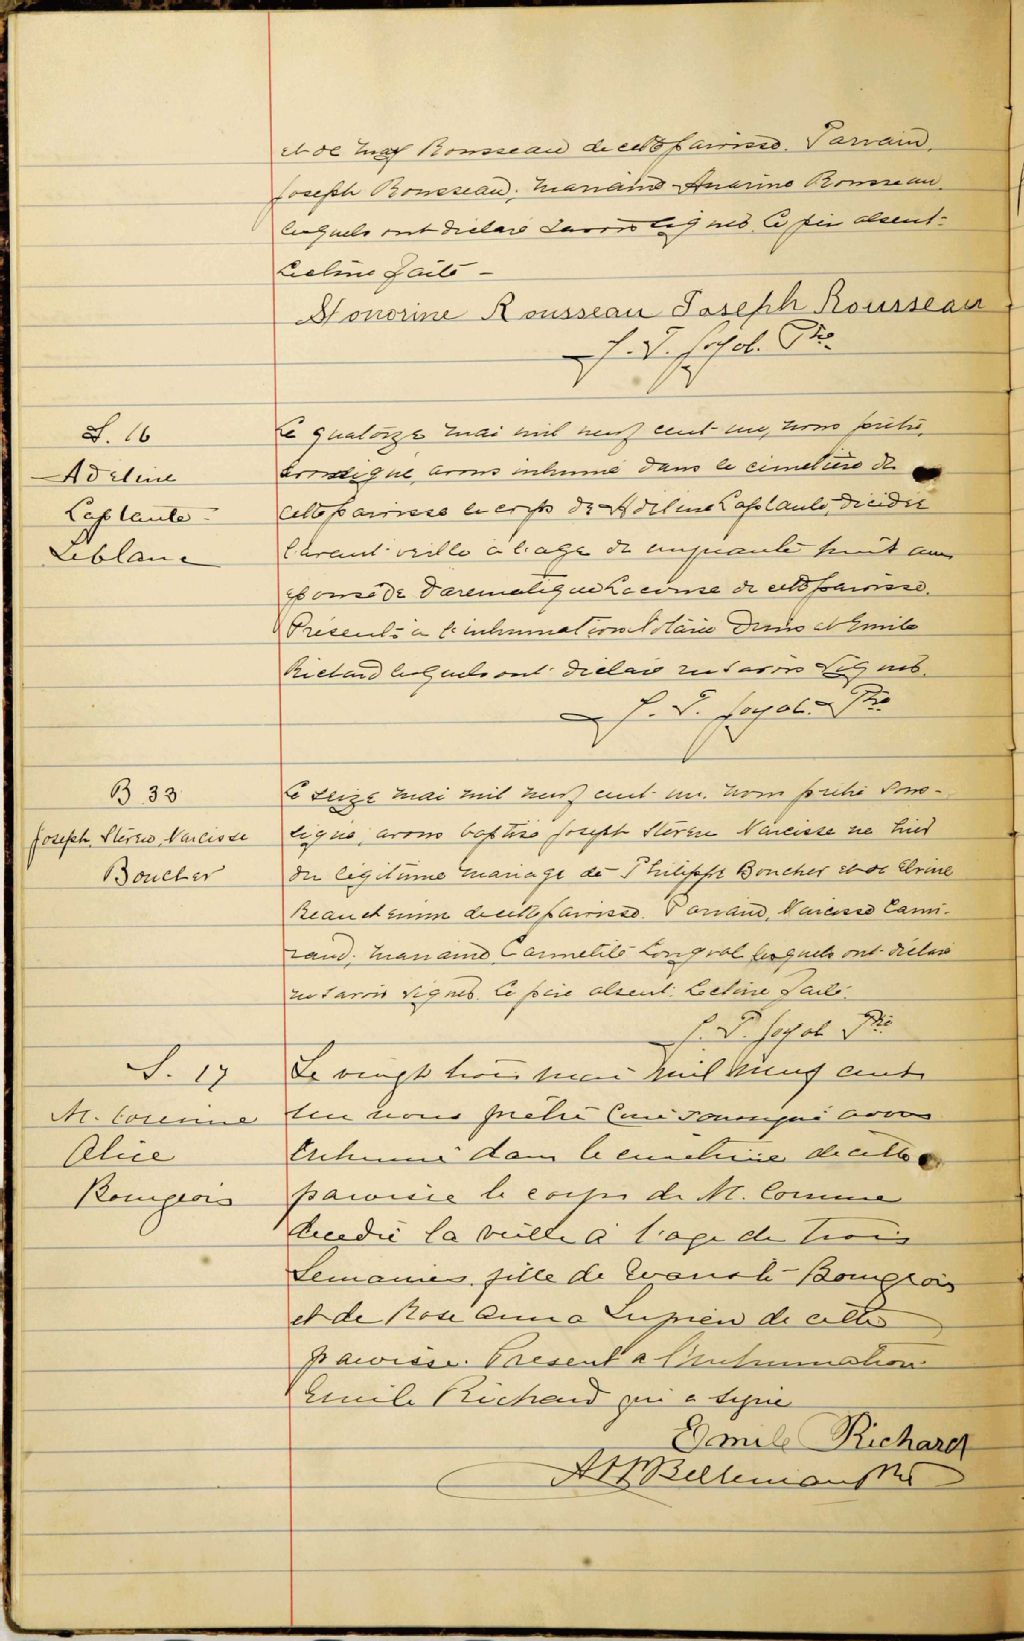 et de Mary Rousseau de cette paroisse. Parrain,
Joseph Rousseau, marraine Rousseau.
lesquels ont déclaré savoir signer. Le père absent.
Lecture faite -
Honorine Rousseau Joseph Rousseau
J. T. Joyal. Ptre
S. 16
Adeline
Laplante
Leblanc
Le quatorze mai mil neuf cent un, nous prêtre,
soussigné, avons inhumé dans le cimetière de
cette paroisse le corps de Adeline Laplante, décédée
l'avant-veille à l'âge de cinquante huit ans
épouse de Lacourse de cette paroisse.
Présents à l'inhumation et Emile
Richard lesquels ont déclaré ne savoir signer.
J. T. Joyal. Ptre
B 33
Joseph, Stéreo, Narcisse
Boucher
Le seize mai mil neuf cent un. nous prêtre sous-
signé, avons baptisé Joseph Narcisse né hier
du légitime mariage de Philippe Boucher et de
Beauchemin de cette paroisse. Parrain, Narcisse Cami-
rand, marraine, Longval lesquels ont déclaré
ne savoir signer. Le père absent. Lecture faite.
J. T. Joyal Ptre
S. 17
M. Corinne
Alice
Bourgeois
Le vingt trois mai mil neuf cent
un nous prêtre Curé soussigné avons
Inhumé dans le cimetière de cette
paroisse le corps de M. Corinne
decedée la veille à l'age de trois
Semaines, fille de Evariste Bourgeois
et de Rose Anna Lupien de cette
paroisse. Present a l'inhumation
Emile Richard qui a signé
Emile Richard
Bellemare Ptre